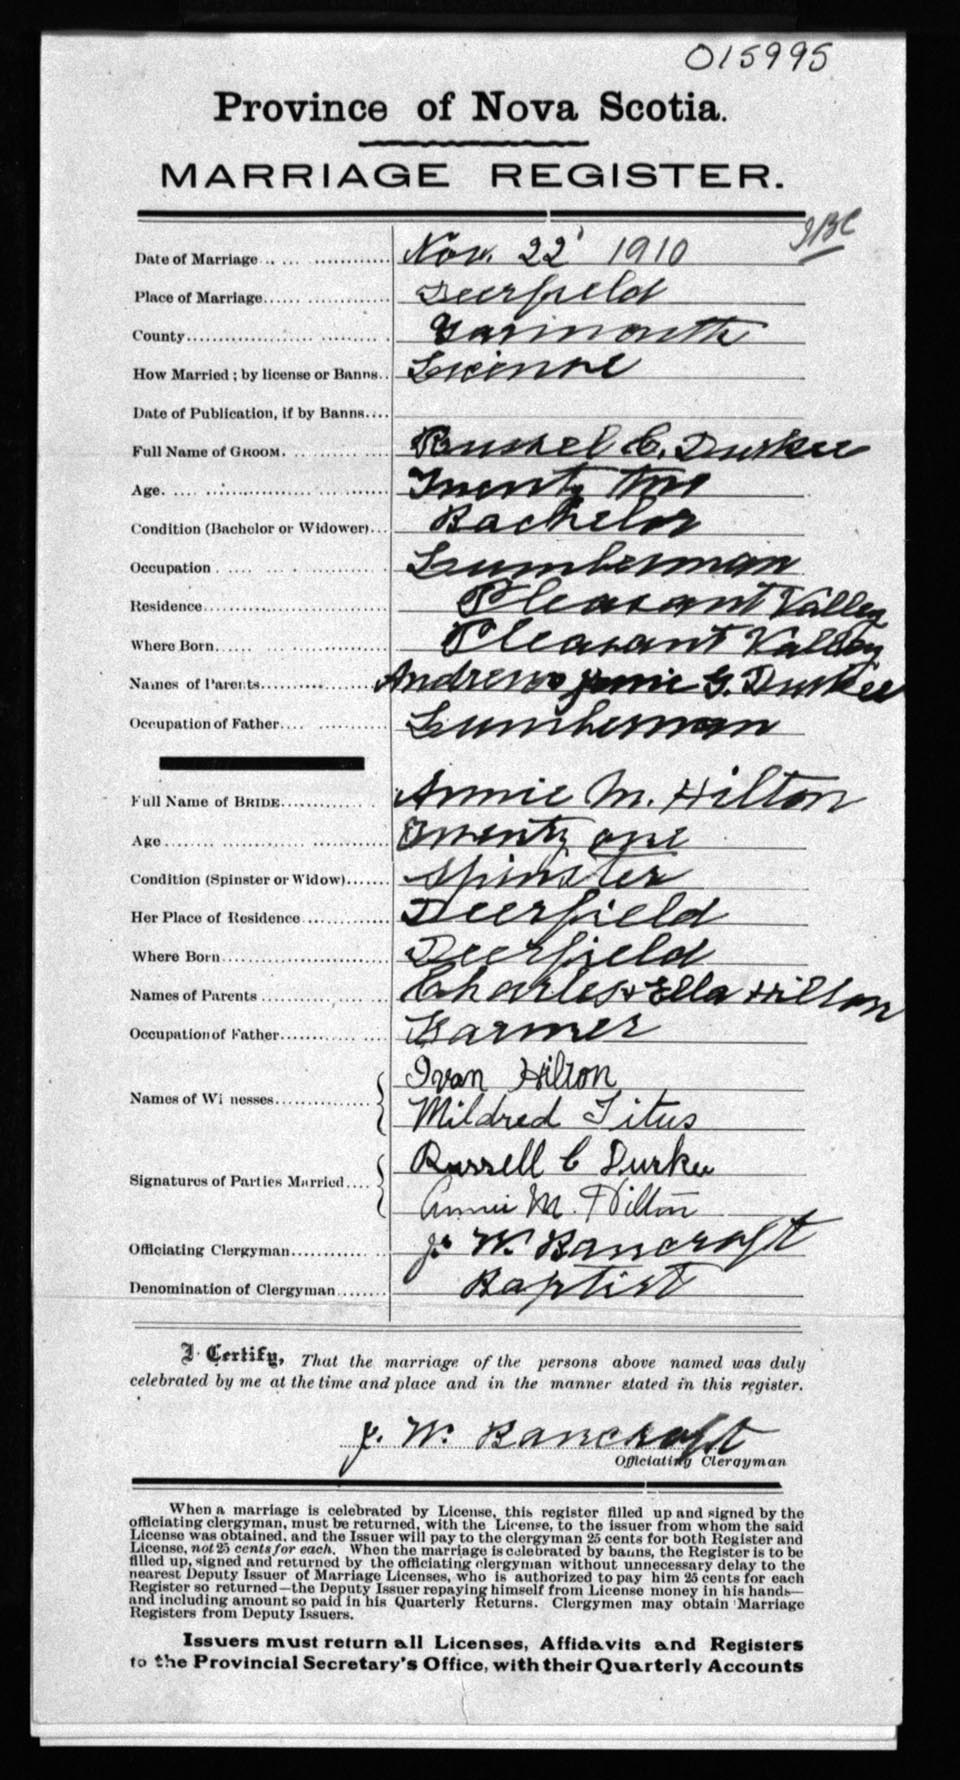 015995
Province of Nova Scotia.
MARRIAGE REGISTER.
Date of Marriage Nov. 22' 1910
Place of Marriage Deerfield
County Yarmouth
How Married; by license or Banns License
Date of Publication, if by Banns
Full Name of GROOM. C. Durkee
Age. Twenty two
Condition (Bachelor or Widower) Bachelor
Occupation Lumberman
Residence Pleasant Valley
Where Born Pleasant Valley
Names of Parents Andrew G. Durkee
Occupation of Father Lumberman
Full Name of BRIDE Annie M. Hilton
Age Twenty one
Condition (Spinster or Widow) Spinster
Her Place of Residence Deerfield
Where Born Deerfield
Names of Parents Charles & Ella Hilton
Occupation of Father Farmer
Names of Witnesses Ivan Hilton
Mildred Titus
Signatures of Parties Married Russell C Durkee
Annie M. Hilton
Officiating Clergyman J. W. Bancroft
Denomination of Clergyman Baptist
I Certify, That the marriage of the persons above named was duly
celebrated by me at the time and place and in the manner stated in this register.
J. W. Bancroft
Officiating Clergyman
When a marriage is celebrated by License, this register filled up and signed by the
officiating clergyman, must be returned, with the License, to the issuer from whom the said
License was obtained, and the Issuer will pay to the clergyman 25 cents for both Register and
License, not 25 cents for each. When the marriage is celebrated by banns, the Register is to be
filled up, signed and returned by the officiating clergyman without unnecessary delay to the
nearest Deputy Issuer of Marriage Licenses, who is authorized to pay him 25 cents for each
Register so returned—the Deputy Issuer repaying himself from License money in his hands—
and including amount so paid in his Quarterly Returns. Clergymen may obtain Marriage
Registers from Deputy Issuers.
Issuers must return all Licenses, Affidavits and Registers
to the Provincial Secretary's Office, with their Quarterly Accounts